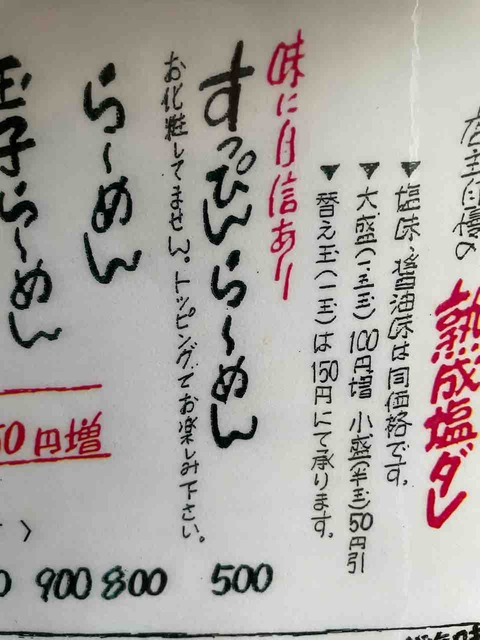 店主自慢の
熟成塩ダレ
▼塩味、醤油味は同価格です。
▼大盛(一.五玉)100円増 小盛(半玉)50円引
▼替え玉(一玉)は150円にて承ります。
味に自信あり
すっぴんら〜めん 500
お化粧してません。トッピングでお楽しみ下さい。
ら〜めん 800
玉子ら〜めん 900
50円増